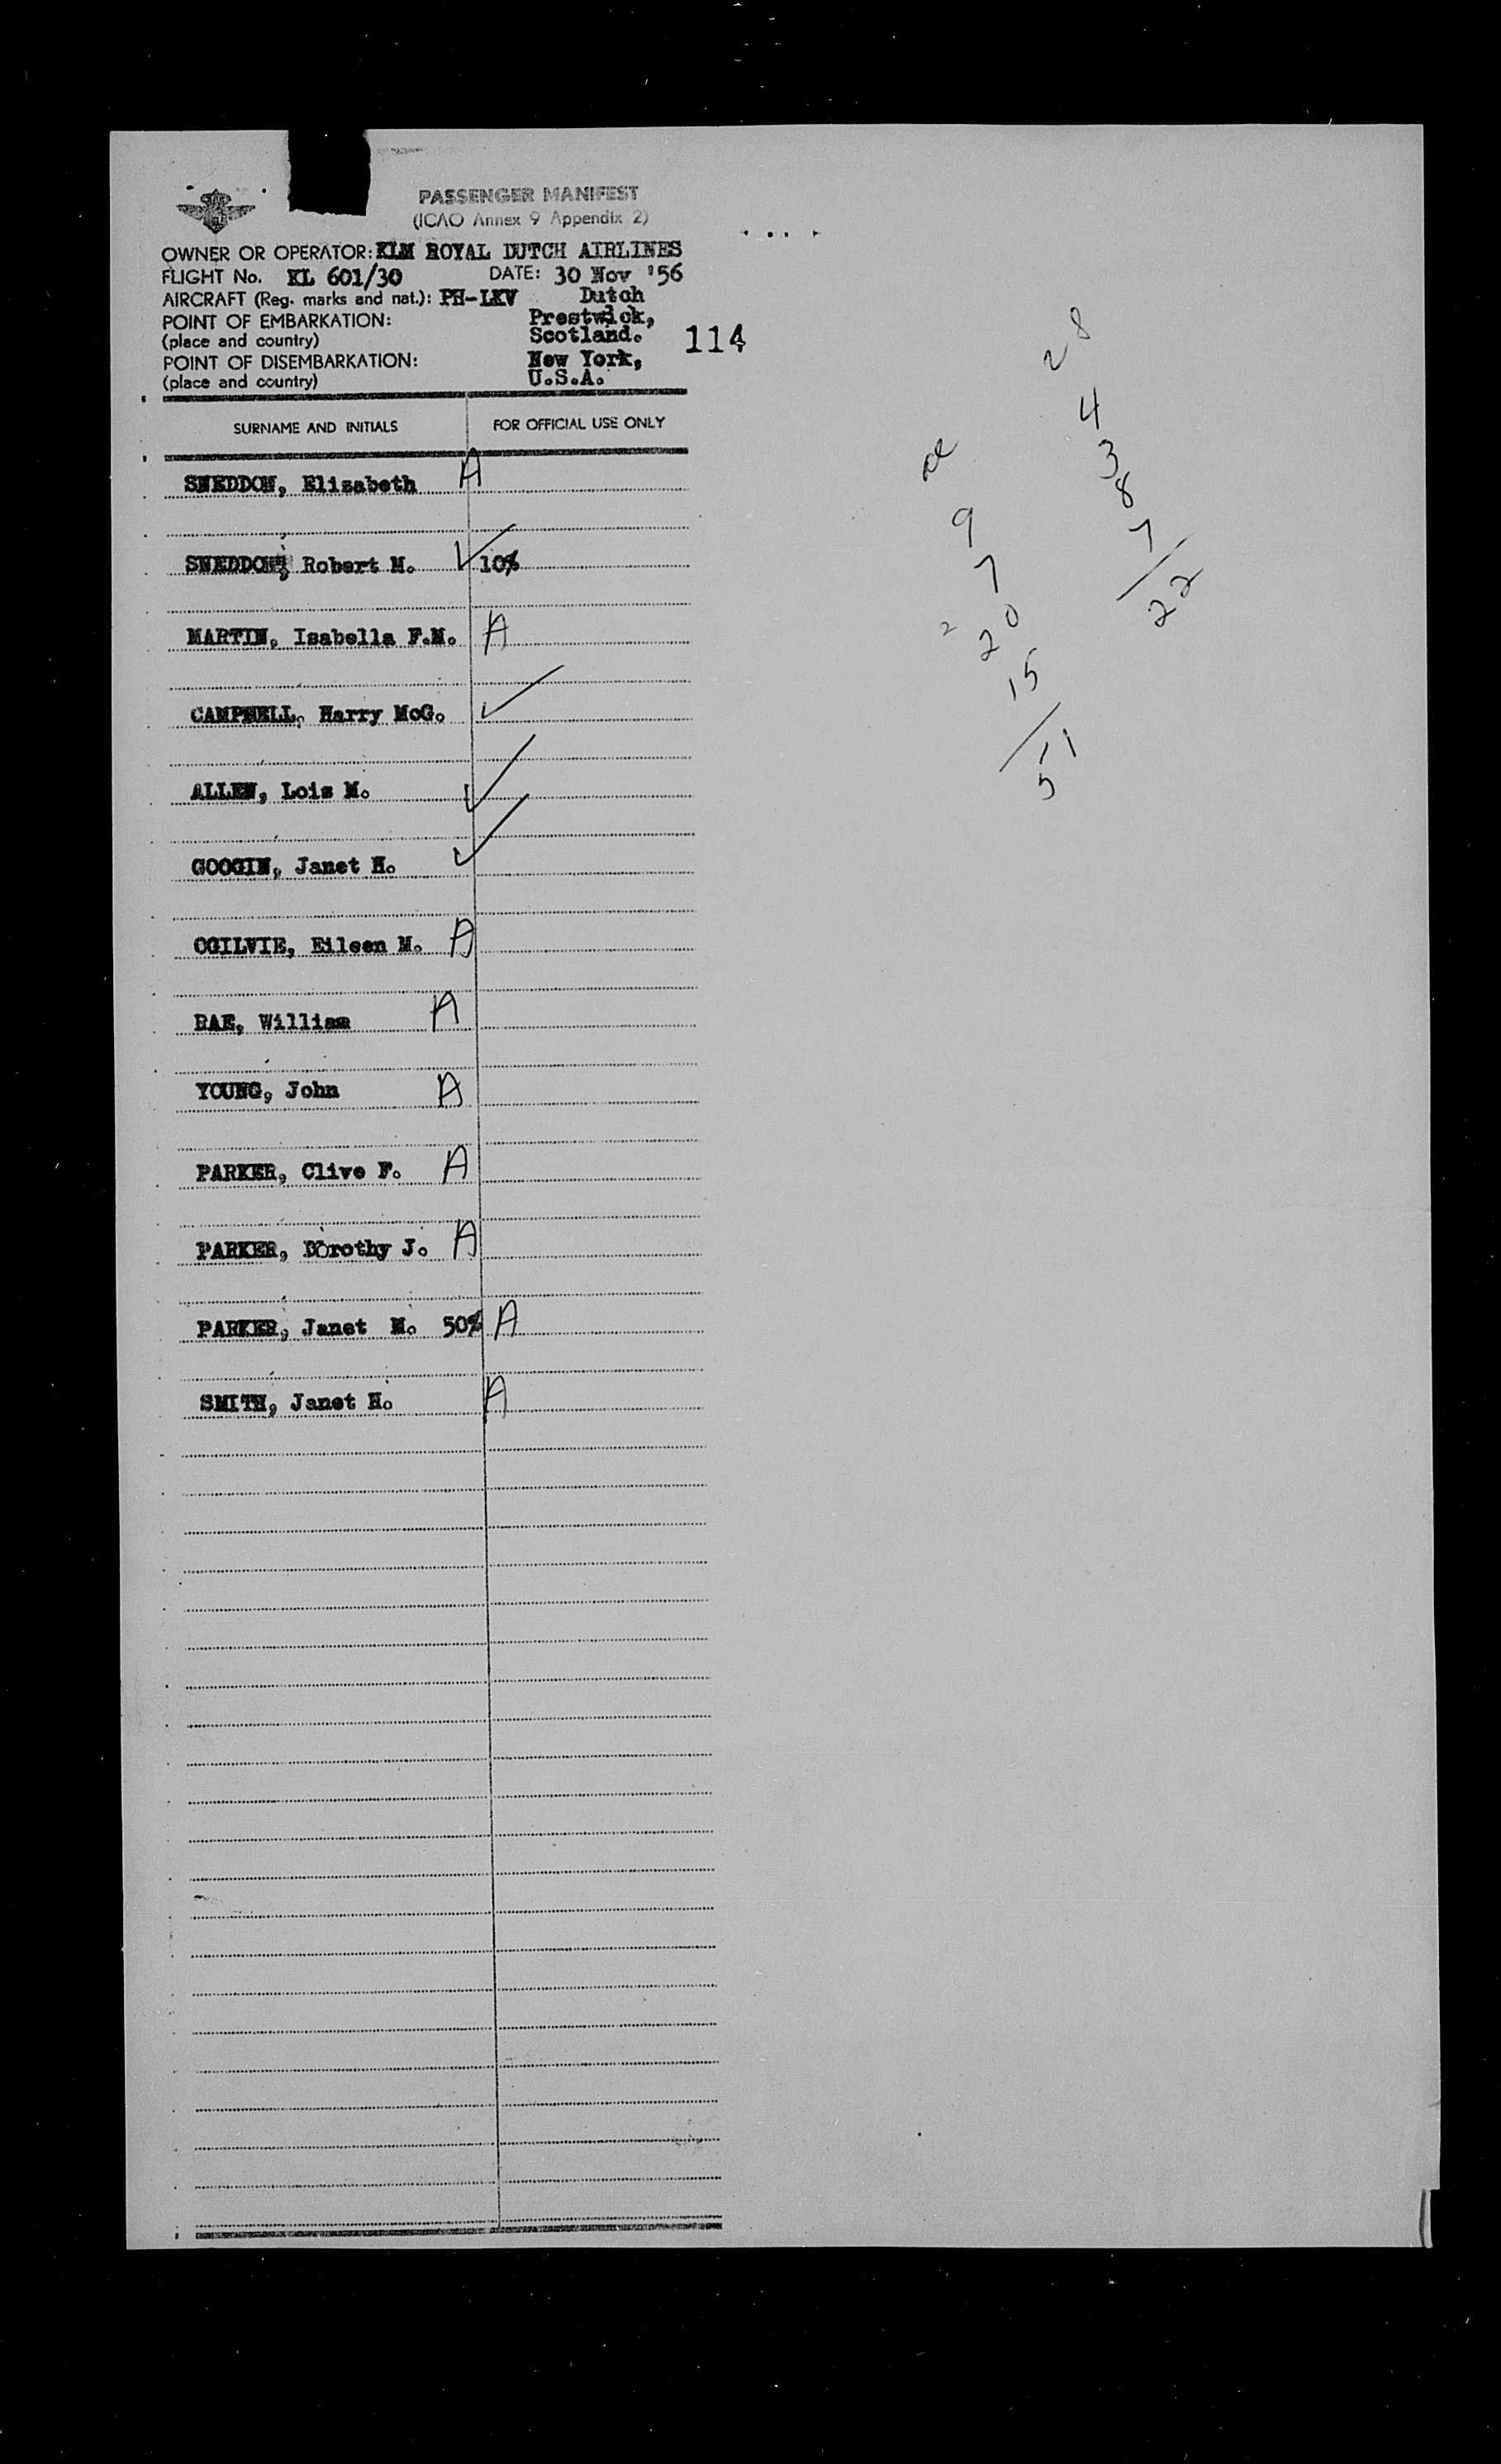 PASSENGER MANIFEST
(ICAO Annex 9 Appendix 2)
OWNER OR OPERATOR: KLM ROYAL DUTCH AIRLINES
FLIGHT No. KL 601/30 DATE: 30 Nov '56
AIRCRAFT (Reg. marks and nat.): PH-LKV Dutch
POINT OF EMBARKATION: Prestwick,
(place and country) Scotland. 114
POINT OF DISEMBARKATION: New York,
(place and country) U.S.A.
SURNAME AND INITIALS FOR OFFICIAL USE ONLY
SNEDDON, Elizabeth A
SNEDDON, Robert M. 10%
MARTIN, Isabella F.M. A
CAMPBELL, Harry McG.
ALLEN, Lois M.
GOOGIN, Janet H.
OGILVIE, Eileen M. A
RAE, William A
YOUNG, John A
PARKER, Clive F. A
PARKER, Dorothy J. A
PARKER, Janet M. 50% A
SMITH, Janet H. A
28
4
3
8
7
22
9
7
2 20
15
51